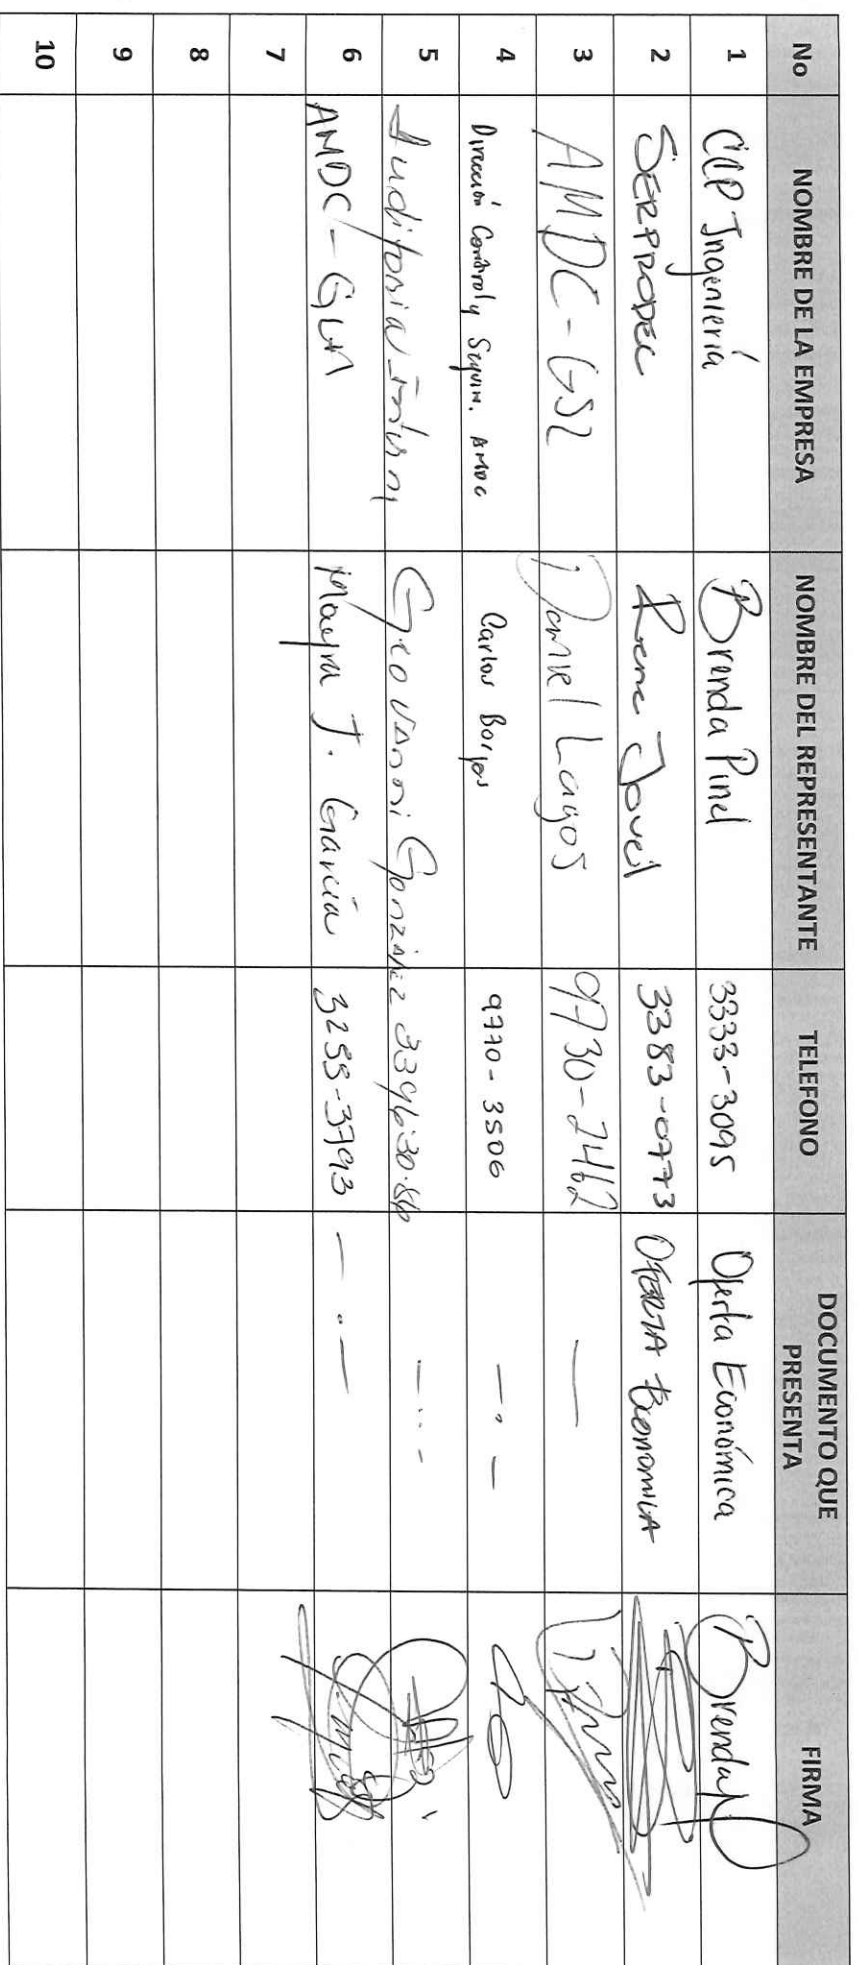 No NOMBRE DE LA EMPRESA NOMBRE DEL REPRESENTANTE TELEFONO DOCUMENTO QUE PRESENTA FIRMA
1 CCP Ingeniería Brenda Pinel 3333-3095 Oferta Económica Brenda P
2 SERPRODEC Rene Jovel 3383-0773 OFERTA Economica
3 AMDC-GSL Daniel Lagos 9730-2462 —
4 Dirección Control y Seguim. AMDC Carlos Borjas 9770-3506 — . —
5 Auditoria Interna Geovanni Gonzalez 33963086 - .. -
6 AMDC-GLM Mayra J. García 3255-3793 — . —
7
8
9
10